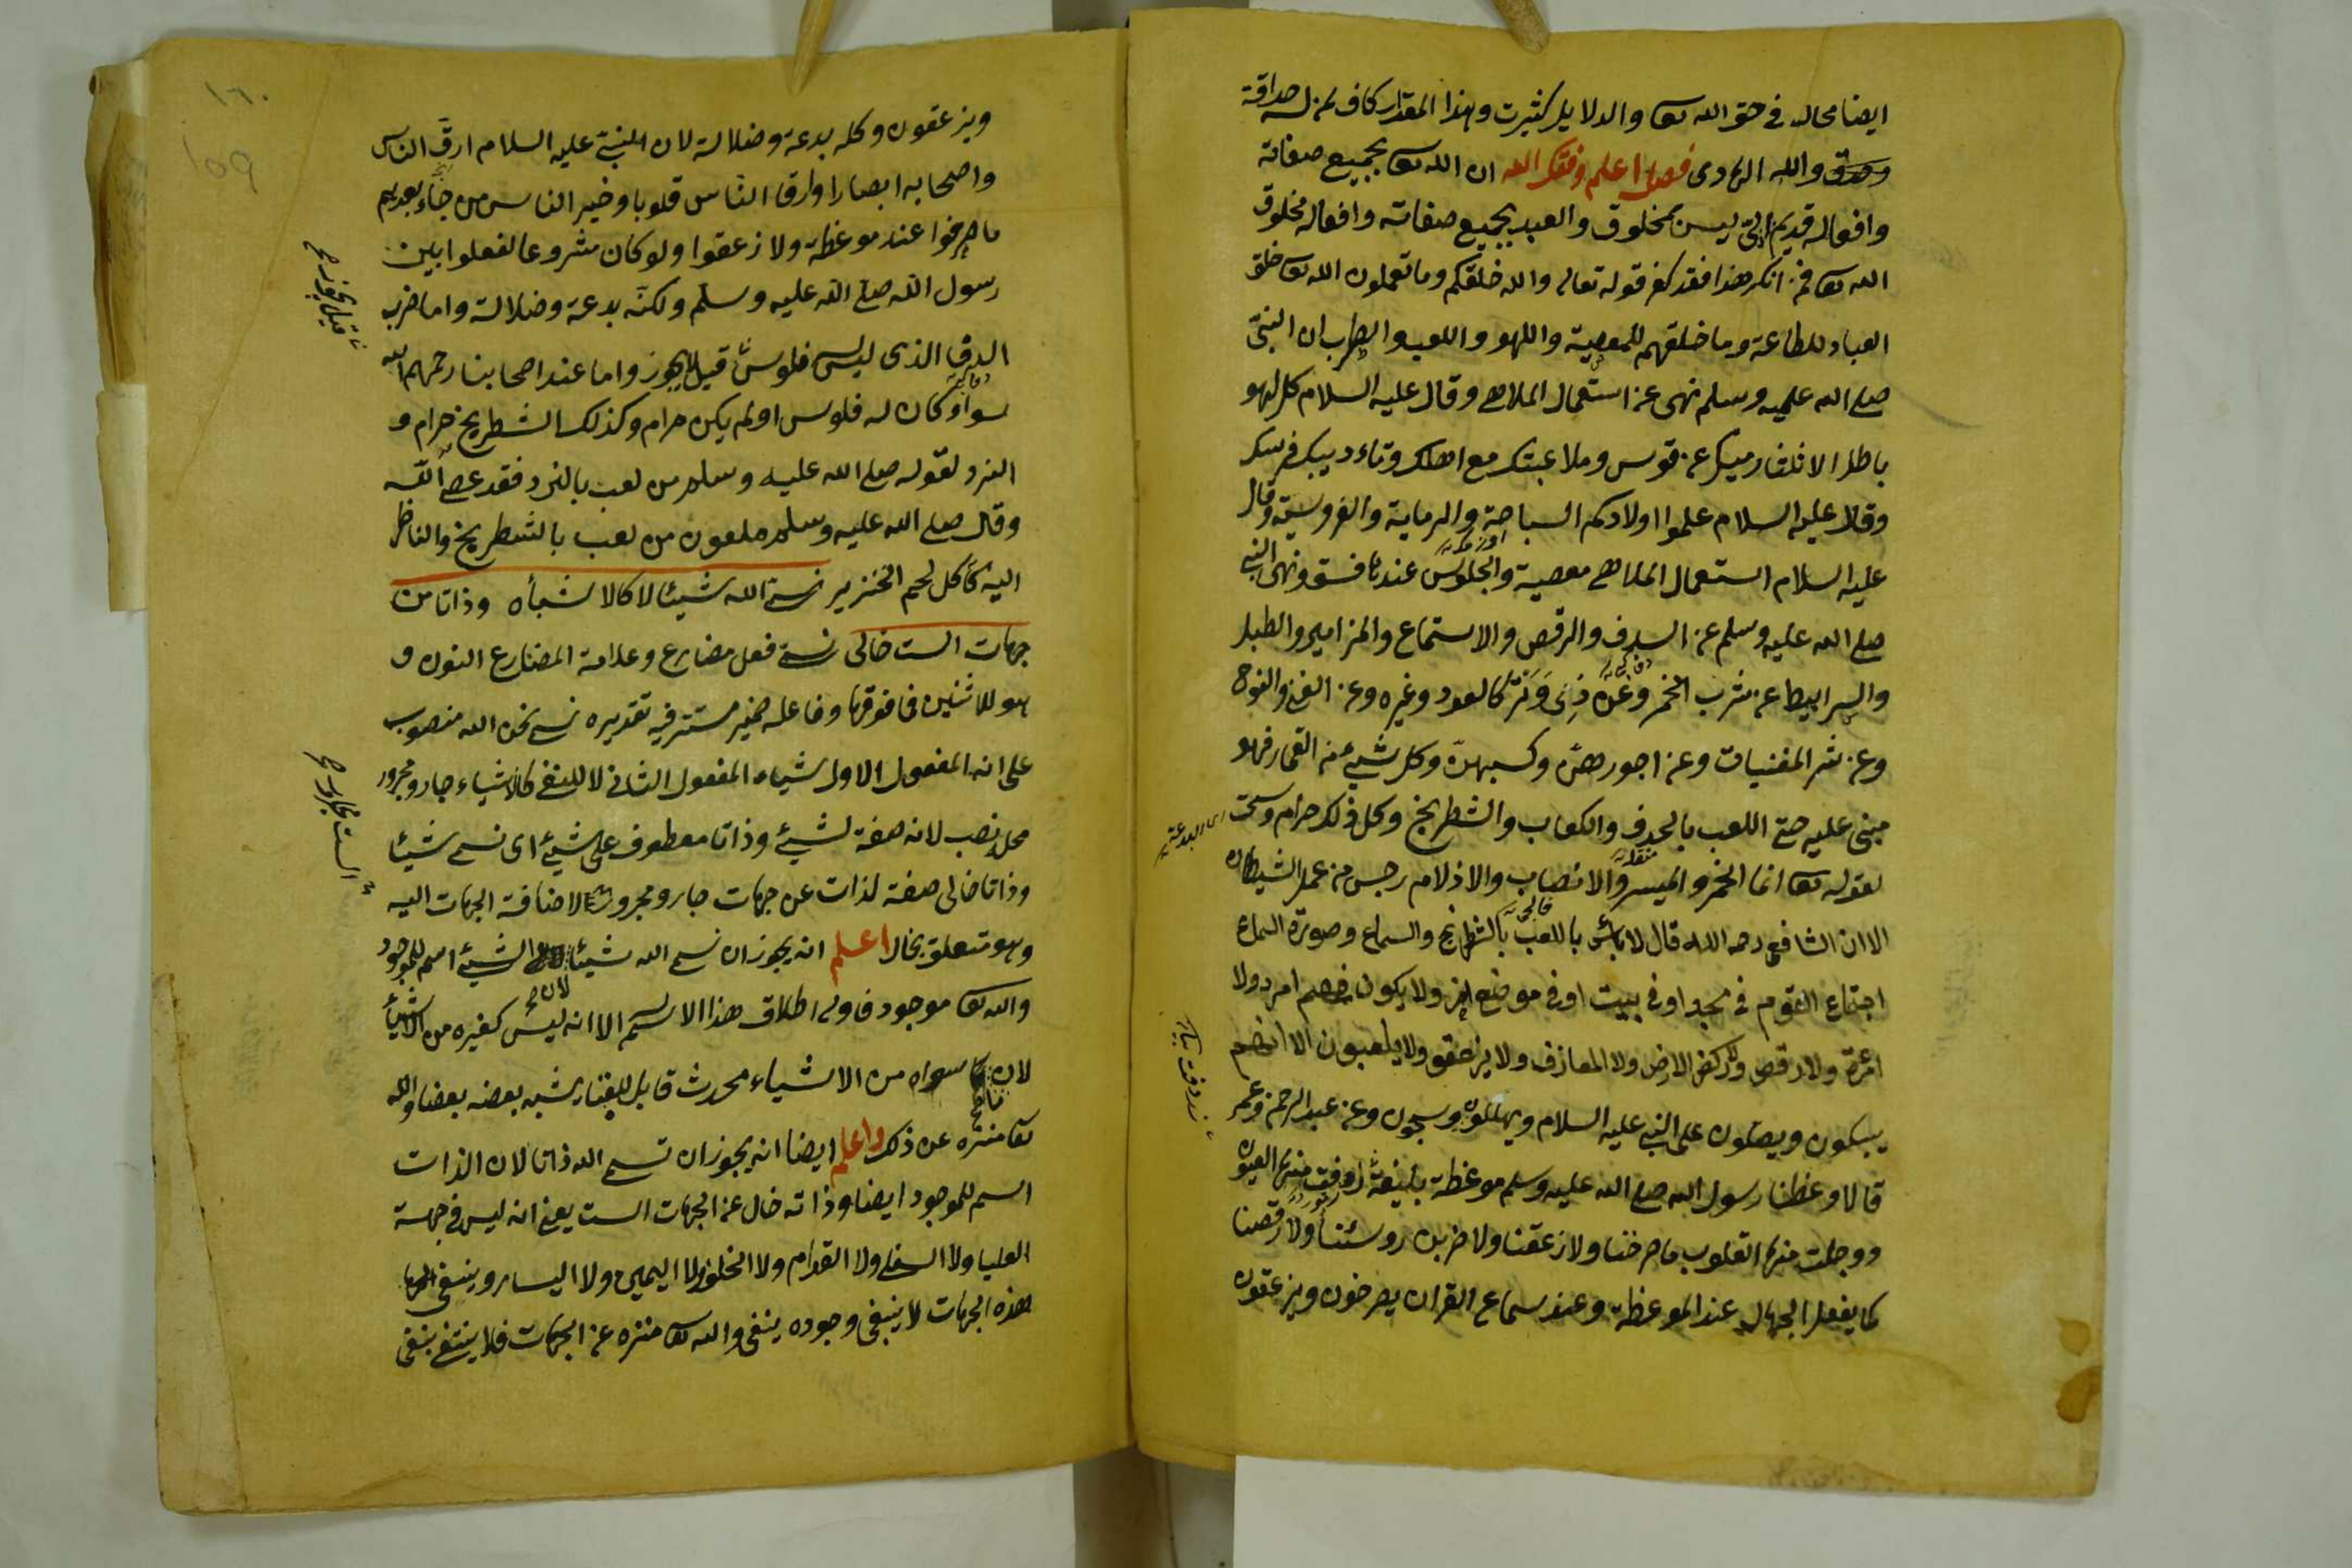 ايضا محال في حق الله تعا والدلايل كثيرت وهذا المقدار كاف لمن له صداقة
وصدق والله الهادى فصل اعلم وفقك الله ان الله تعا بجميع صفاته
وافعاله قديم ليس بمخلوق والعبد بجميع صفاته وافعاله مخلوق
الله تعا فمن انكر هذا فقد كفر قوله تعالى والله خلقكم وما تعملون الله تعا خلق
العباد للطاعة وما خلقهم للمعصية واللهو واللعب والطرب ان النبى
صلى الله عليه وسلم نهى عن استعمال الملاهى وقال عليه السلام كل لهو
باطل الا ثلثا رميك عن قوس وملاعبتك مع اهلك وتاءديبك فرسك
وقال عليه السلام علموا اولادكم السباحة والرماية والفروسية وقال
عليه السلام استعمال الملاهى معصية والجلوس عندها فسق ونهى النبى
صلى الله عليه وسلم عن الدف والرقص والاستماع والمزامير والطبل
والبرابيط عن شرب الخمر وعن ذى وتر كالعود وغيره وعن الغنى والنوح
وعن شر المغنيات وعن اجورهن وكسبهن وكل شيئ من القمار فهو
مبنى عليه حتى اللعب بالحدف والكعاب والشطرنج وكل ذلك حرام وسحت
لقوله تعا انما الخمر والميسر والانصاب والازلام رجس من عمل الشيطان
الا ان الشافعى رحمه الله قال لا بائس باللعب بالشطرنج والسماع وصورة السماع
اجتماع القوم في مسجد او في بيت او في موضع اخر ولا يكون فيهم امرد ولا
امرئة ولا رقص ولا ركض الارض ولا المعازف ولا يزعقو ولا يلعبون الا انهم
يبكون ويصلون على النبى عليه السلام ويهللون ويسبحون وعن عبد الرحمن وعمر
قالا وعظنا رسول الله صلى الله عليه وسلم موعظة بليغة ذرفت منها العيون
ووجلت منها القلوب ما صرخنا ولا زعقنا ولا ضربن روسئنا ولا رقصنا
كما يفعل الجهال عند الموعظة وعند سماع القران يصرخون ويزعقون
١٦٠
159
ويزعقون وكله بدعة وضلالة لان النبى عليه السلام ارق الناس
واصحابه ابصارا وارق الناس قلوبا وخير الناس من جاء بعدهم
ما صرخوا عند موعظة ولا زعقوا ولو كان مشروعا لفعلوا بين
رسول الله صلى الله عليه وسلم ولكنه بدعة وضلالة واما ضرب
الدف الذى ليس فلوس قيل يجوز واما عند اصحابنا رحمهم الله
سواء كان له فلوس او لم يكن حرام وكذلك الشطرنج حرام و
النرد لقوله صلى الله عليه وسلم من لعب بالنرد فقد عصى الله
وقال صلى الله عليه وسلم ملعون من لعب بالشطرنج والناظر
اليه كاكل لحم الخنزير نسمى الله شيئا لا كالاشياء وذاتا من
جهات الست خالى نسمى فعل مضارع وعلامة المضارع النون و
هو للاثنين فما فوقها وفاعله ضمير مستتر فيه تقديره نسمى نحن الله منصوب
على انه المفعول الاول شيئا المفعول الثانى لا للنفى كالاشياء جار ومجرور
محل نصب لانه صفة لشيئ وذاتا معطوف على شيئ اى نسمى شيئا
وذاتا خالى صفة لذات عن جهات جار ومجرور الست لاضافة الجهات اليه
وهو متعلق بخال اعلم انه يجوز ان نسمى الله شيئا الشيئ اسم للموجود
والله تعا موجود فاولى اطلاق هذا الاسم الا انه ليس كغيره من الاشياء
لان ما سواه من الاشياء محدث قابل للفناء يشبه بعضه بعضا والله
تعا منزه عن ذلك واعلم ايضا انه يجوز ان نسمى الله ذاتا لان الذات
اسم للموجود ايضا وذاته خال عن الجهات الست يعنى انه ليس في جهة
العليا ولا السفلى ولا القدام ولا الخلف ولا اليمين ولا اليسار وينفى
هذه الجهات لا ينفى وجوده ينفى والله تعا منزه عن الجهات فلا ينتفى بنفى